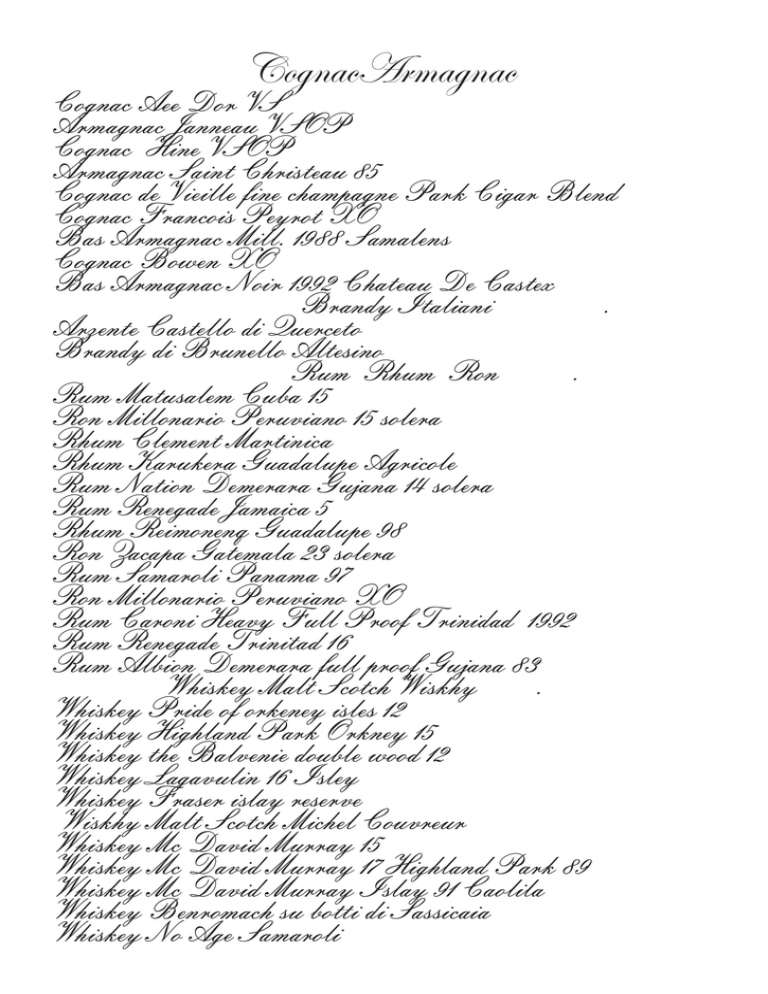 CognacArmagnac
Cognac Aee Dor VS
Armagnac Janneau VSOP
Cognac Hine VSOP
Armagnac Saint Christeau 85
Cognac de Vieille fine champagne Park Cigar Blend
Cognac Francois Peyrot XO
Bas Armagnac Mill. 1988 Samalens
Cognac Bowen XO
Bas Armagnac Noir 1992 Chateau De Castex
Brandy Italiani .
Arzente Castello di Querceto
Brandy di Brunello Altesino
Rum Rhum Ron .
Rum Matusalem Cuba 15
Ron Millonario Peruviano 15 solera
Rhum Clement Martinica
Rhum Karukera Guadalupe Agricole
Rum Nation Demerara Gujana 14 solera
Rum Renegade Jamaica 5
Rhum Reimonenq Guadalupe 98
Ron Zacapa Gatemala 23 solera
Rum Samaroli Panama 97
Ron Millonario Peruviano XO
Rum Caroni Heavy Full Proof Trinidad 1992
Rum Renegade Trinitad 16
Rum Albion Demerara full proof Gujana 83
Whiskey Malt Scotch Wiskhy .
Whiskey Pride of orkeney isles 12
Whiskey Highland Park Orkney 15
Whiskey the Balvenie double wood 12
Whiskey Lagavulin 16 Isley
Whiskey Fraser islay reserve
Wiskhy Malt Scotch Michel Couvreur
Whiskey Mc David Murray 15
Whiskey Mc David Murray 17 Highland Park 89
Whiskey Mc David Murray Islay 91 Caolila
Whiskey Benromach su botti di Sassicaia
Whiskey No Age Samaroli